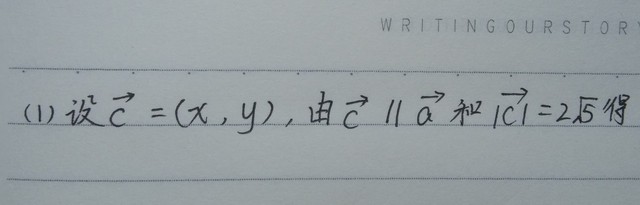 WRITINGOURSTORY
(1) 设 $\overrightarrow{c}$ = (x, y), 由 $\overrightarrow{c}$ // $\overrightarrow{a}$ 和 |$\overrightarrow{c}$| = 2√5 得